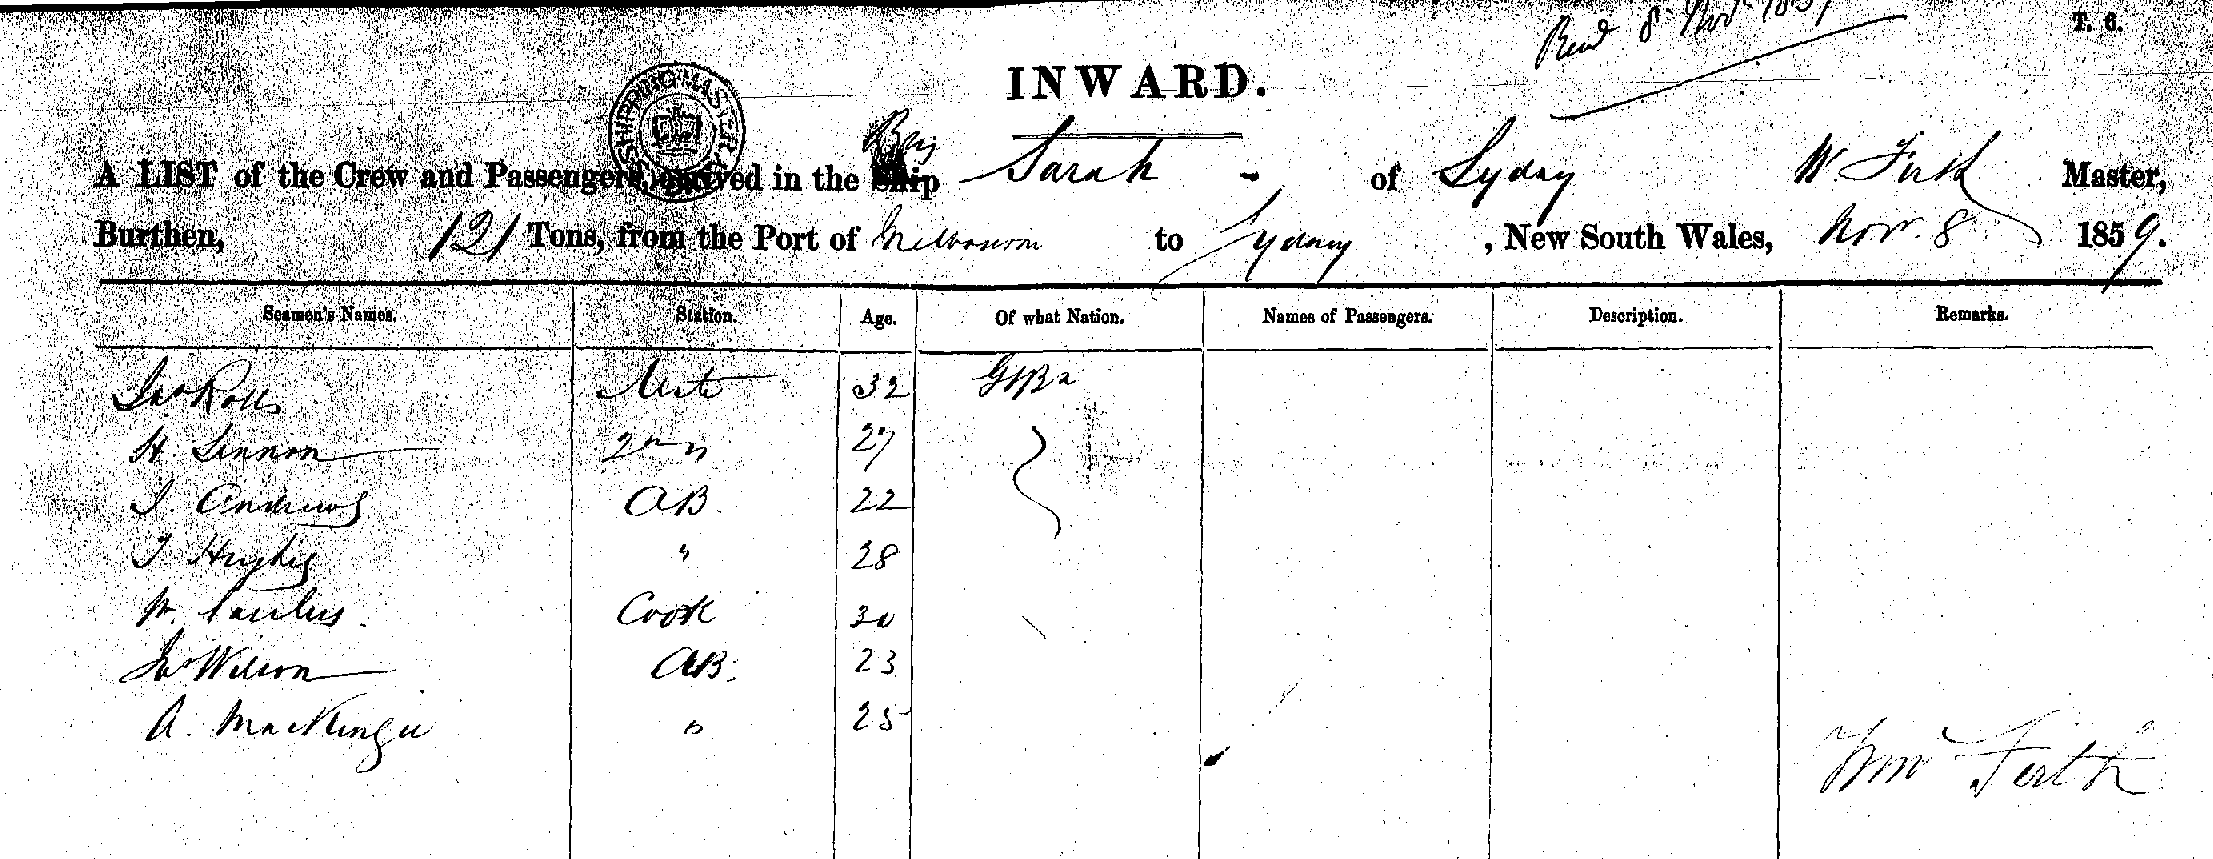 Recd 8 Novr 1859
T. 6.
INWARD.
SHIPPING MASTER
Brig
A LIST of the Crew and Passengers, arrived in the Ship Sarah - of Sydny W. Firth Master,
Burthen, 121 Tons, from the Port of Melbourn to Sydney, New South Wales, Nov. 8 1859.
Seamen's Names. Station. Age. Of what Nation. Names of Passengers. Description. Remarks.
Mate 32 Gt Bn
H. Lennon 2nd " 27
J. Andrews AB 22
T. Hughes " 28
W. Cook 30
Jno Wilson AB. 23
A. MacKenzie " 25
Wm Firth